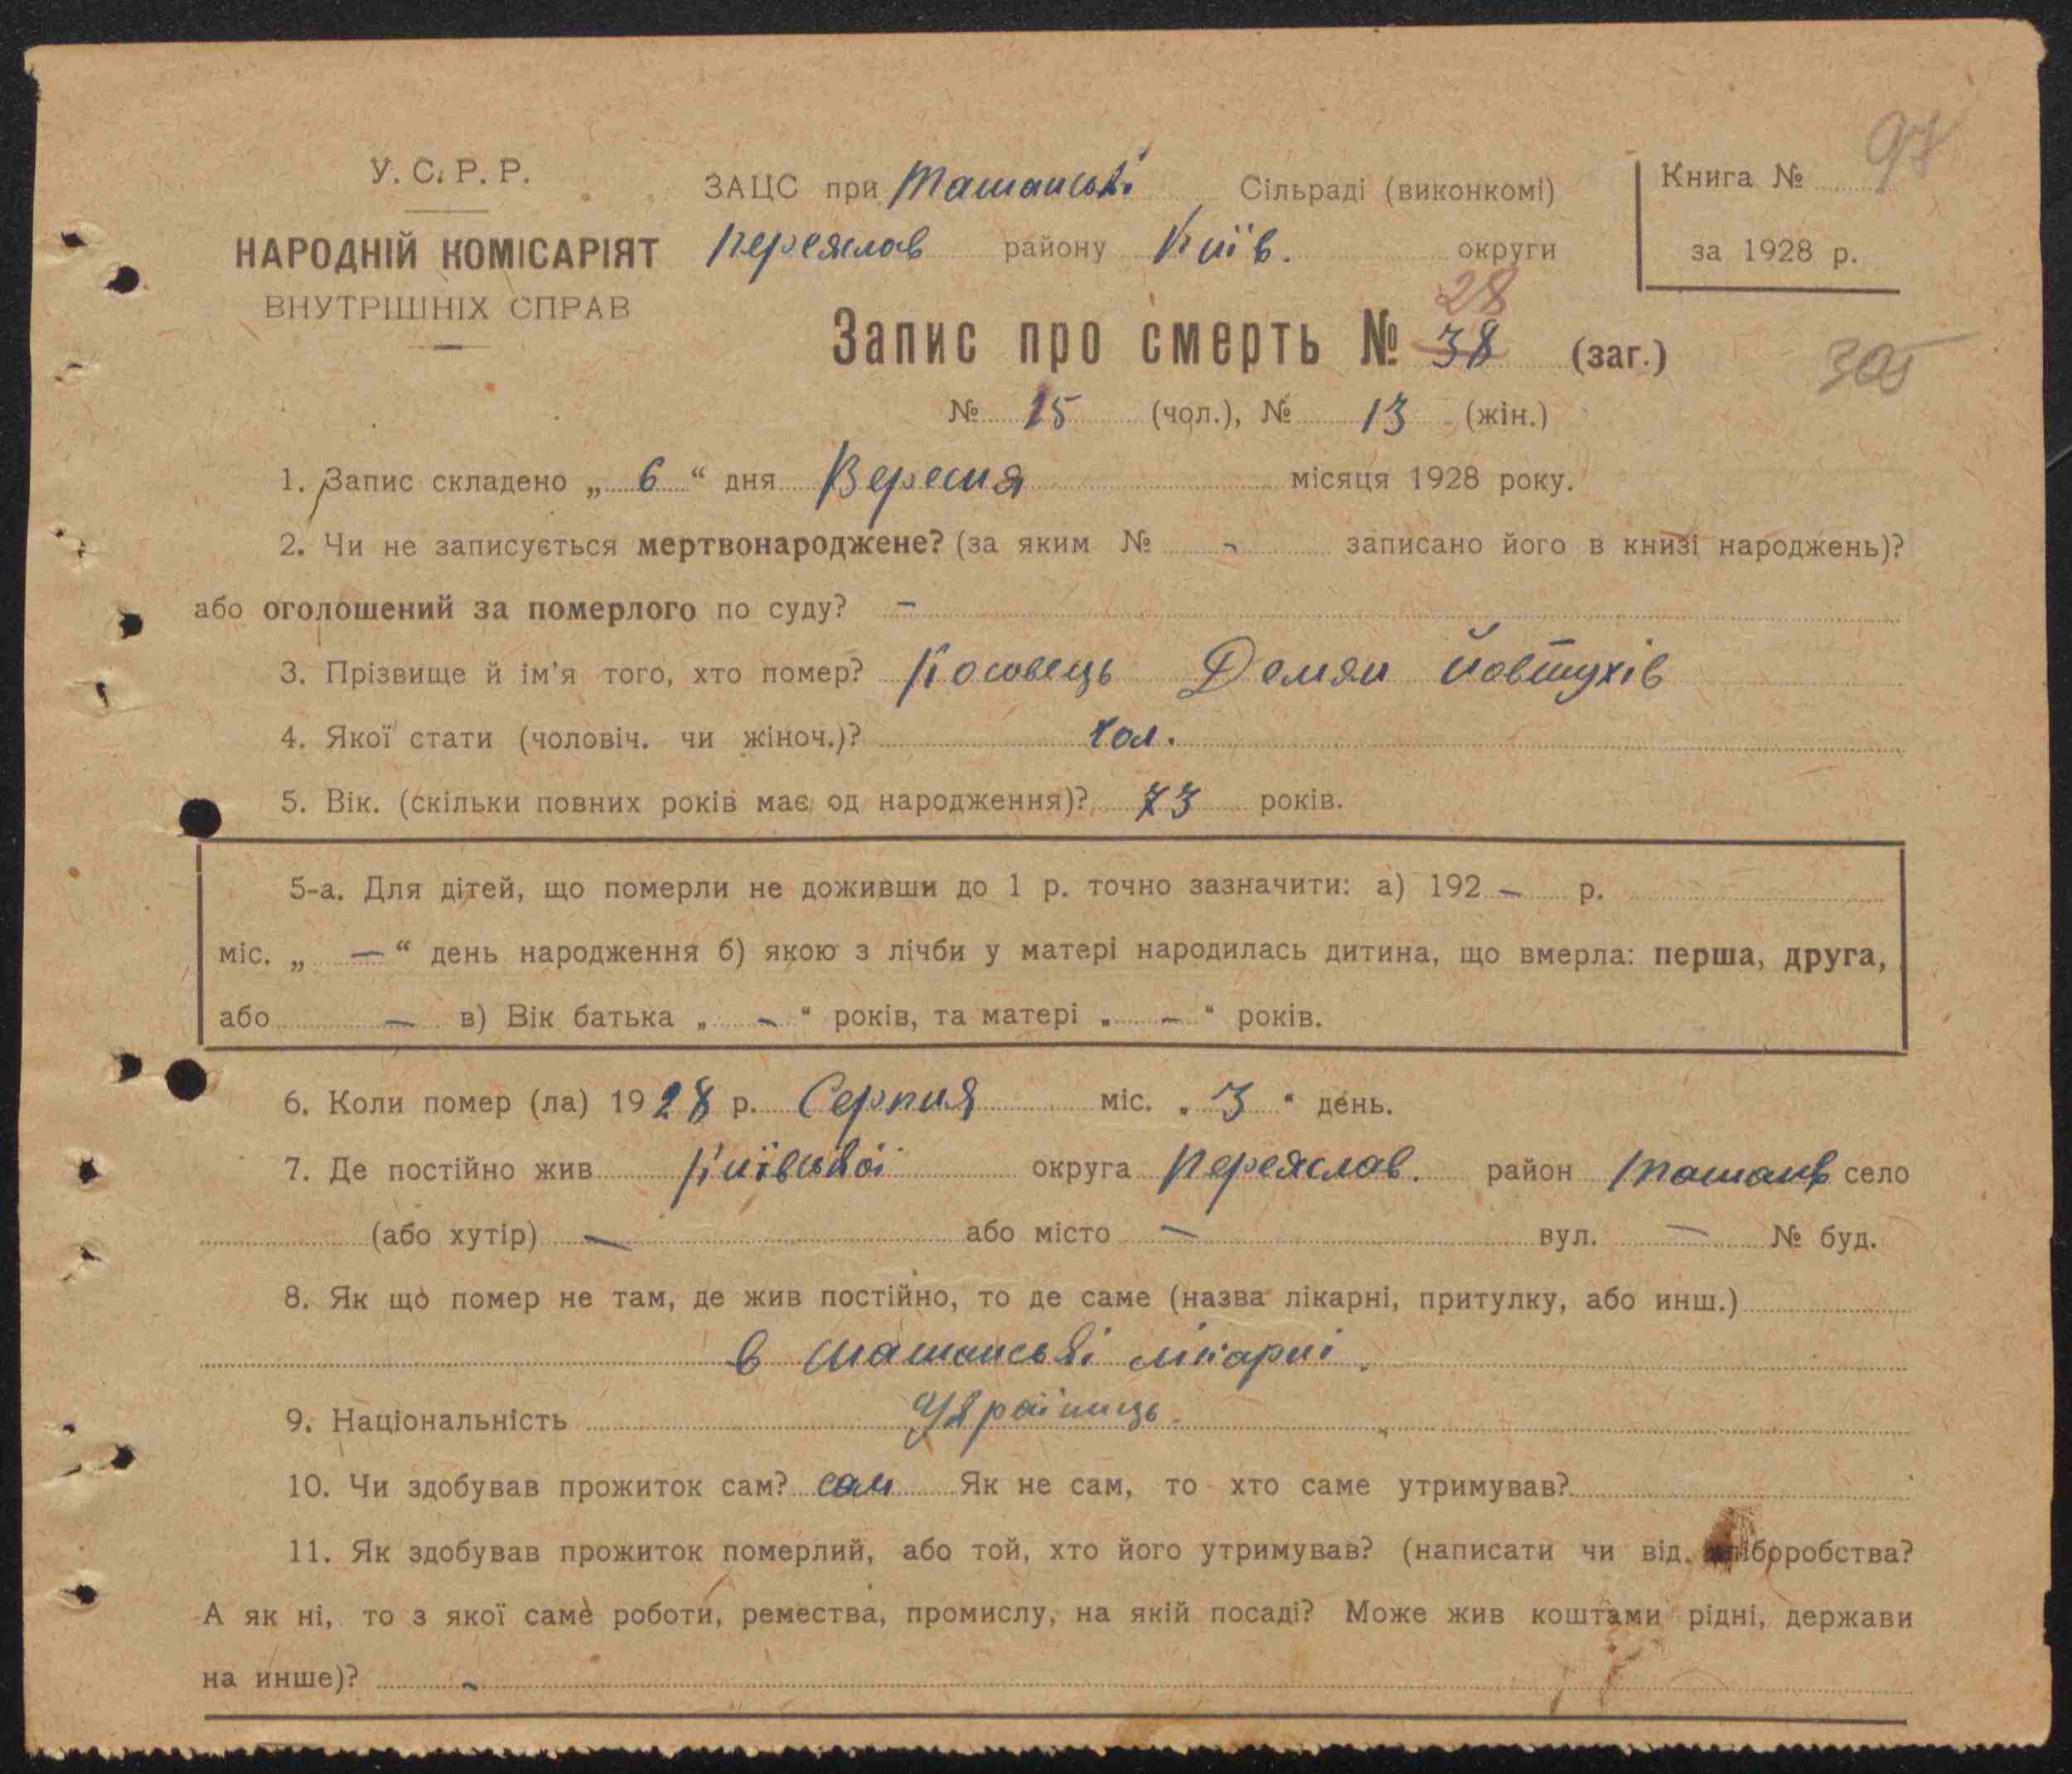 97
У. С. Р. Р.
ЗАЦС при Ташанські Сільраді (виконкомі)
Книга №
НАРОДНІЙ КОМІСАРІЯТ
Переяслав району Київ. округи
за 1928 р.
ВНУТРІШНІХ СПРАВ
28
Запис про смерть № 38 (заг.)
305
№ 15 (чол.), № 13 (жін.)
1. Запис складено „ 6 “ дня Вересня місяця 1928 року.
2. Чи не записується мертвонароджене? (за яким № - записано його в книзі народжень)?
або оголошений за померлого по суду? –
3. Прізвище й ім'я того, хто помер? Косовець Демян Йовтухів
4. Якої стати (чоловіч. чи жіноч.)? чол.
5. Вік. (скільки повних років має од народження)? 73 років.
5-а. Для дітей, що померли не доживши до 1 р. точно зазначити: а) 192 – р.
міс. „ — “ день народження б) якою з лічби у матері народилась дитина, що вмерла: перша, друга,
або — в) Вік батька „ – “ років, та матері „ – “ років.
6. Коли помер (ла) 1928 р. Серпня міс. „ 3 “ день.
7. Де постійно жив Київської округа Переяслав. район Ташань село
(або хутір) — або місто — вул. — № буд.
8. Як що помер не там, де жив постійно, то де саме (назва лікарні, притулку, або инш.)
в Ташанські лікарні.
9. Національність Українець
10. Чи здобував прожиток сам? сам Як не сам, то хто саме утримував?
11. Як здобував прожиток померлий, або той, хто його утримував? (написати чи від хліборобства?
А як ні, то з якої саме роботи, ремества, промислу, на якій посаді? Може жив коштами рідні, держави
на инше)? -